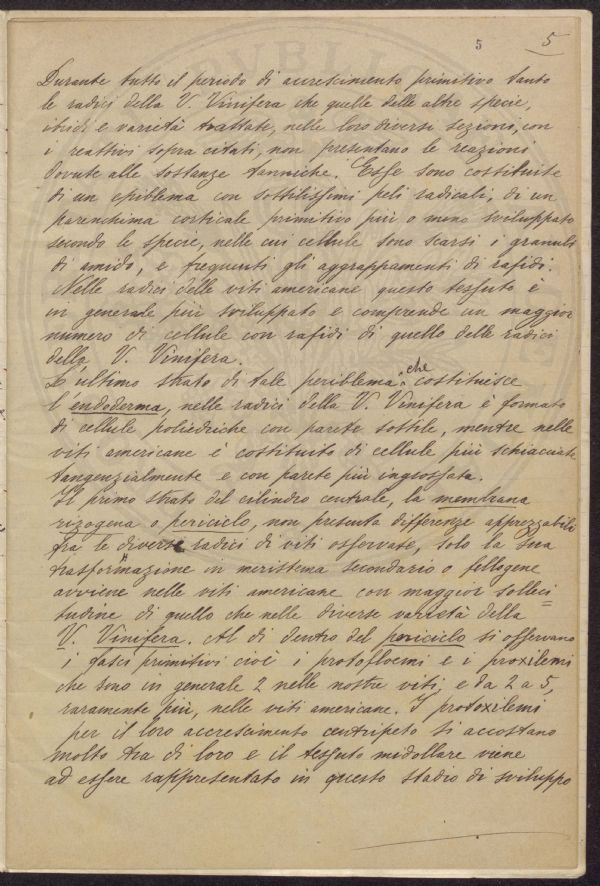 5 5
Durante tutto il periodo di accrescimento primitivo tanto
le radici della V. Vinifera che quelle delle altre specie,
ibridi e varietà trattate, nelle loro diverse sezioni, con
i reattivi sopra citati, non presentano le reazioni
dovute alle sostanze tanniche. Esse sono costituite
di un epiblema con sottilissimi peli radicali, di un
parenchima corticale primitivo più o meno sviluppato
secondo le specie, nelle cui cellule sono scarsi i granuli
di amido, e frequenti gli aggrappamenti di rafidi.
Nelle radici delle viti americane questo tessuto è
in generale più sviluppato e comprende un maggior
numero di cellule con rafidi di quello delle radici
della V. Vinifera.
L'ultimo strato di tale periblema che costituisce
l'endoderma, nelle radici della V. Vinifera è formato
di cellule poliedriche con parete sottile, mentre nelle
viti americane è costituito di cellule più schiacciate
tangenzialmente e con parete più ingrossata.
Il primo strato del cilindro centrale, la membrana
rizogena o periciclo, non presenta differenze apprezzabili
tra le diverse radici di viti osservate, solo la sua
trasformazione in meristema secondario o fellogene
avviene nelle viti americane con maggior solleci=
tudine di quello che nelle diverse varietà della
V. Vinifera. Al di dentro del periciclo si osservano
i fasci primitivi cioè i protofloemi e i proxilemi
che sono in generale 2 nelle nostre viti, e da 2 a 5,
raramente più, nelle viti americane. I protoxilemi
per il loro accrescimento centripeto si accostano
molto tra di loro e il tessuto midollare viene
ad essere rappresentato in questo stadio di sviluppo